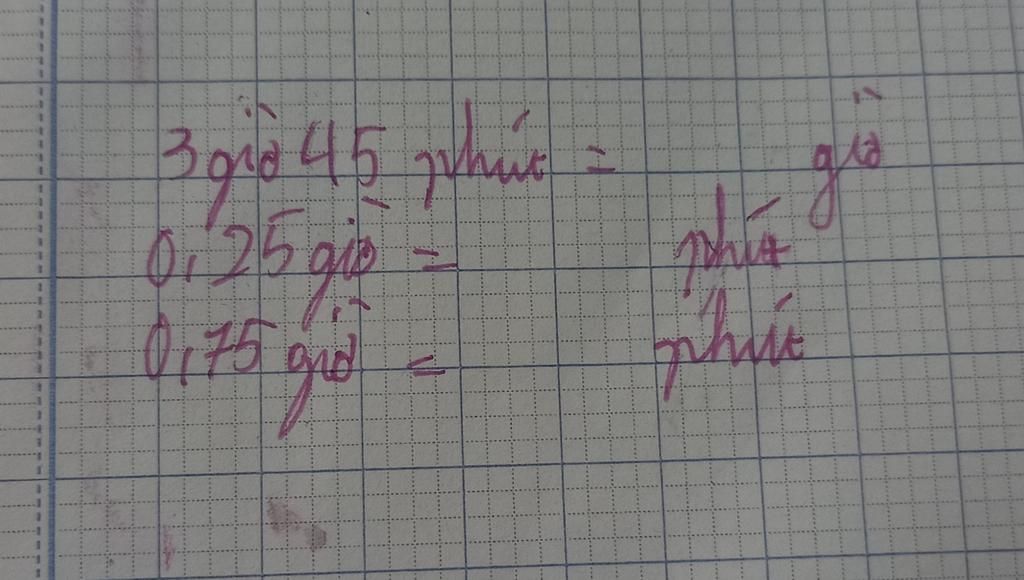 3 giờ 45 phút = giờ
0,25 giờ = phút
0,75 giờ = phút